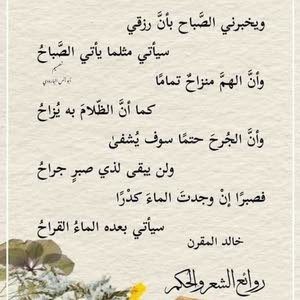 ويخبرني الصَّباح بأنَّ رزقي
سيأتي مثلما يأتي الصَّباحُ
وأنَّ الهمَّ منزاحٌ تمامًا
كما أنَّ الظّلامَ به يُزاحُ
وأنَّ الجُرحَ حتمًا سوف يُشفىٰ
ولن يبقى لذي صبرٍ جراحُ
فصبرًا إنْ وجدتَ الماءَ كدْرًا
سيأتي بعده الماءُ القراحُ
خالد المقرن
روائع الشعر والحكم